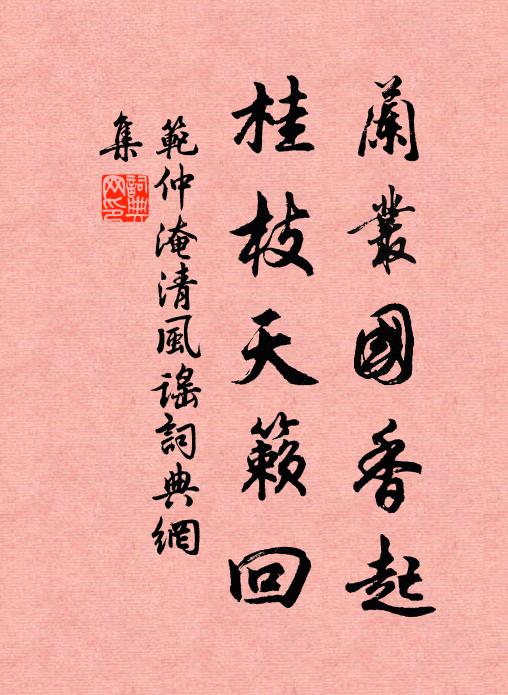 蘭叢國香起
桂枝天籟回
範仲淹清風謠詞典網
集
詞典網印